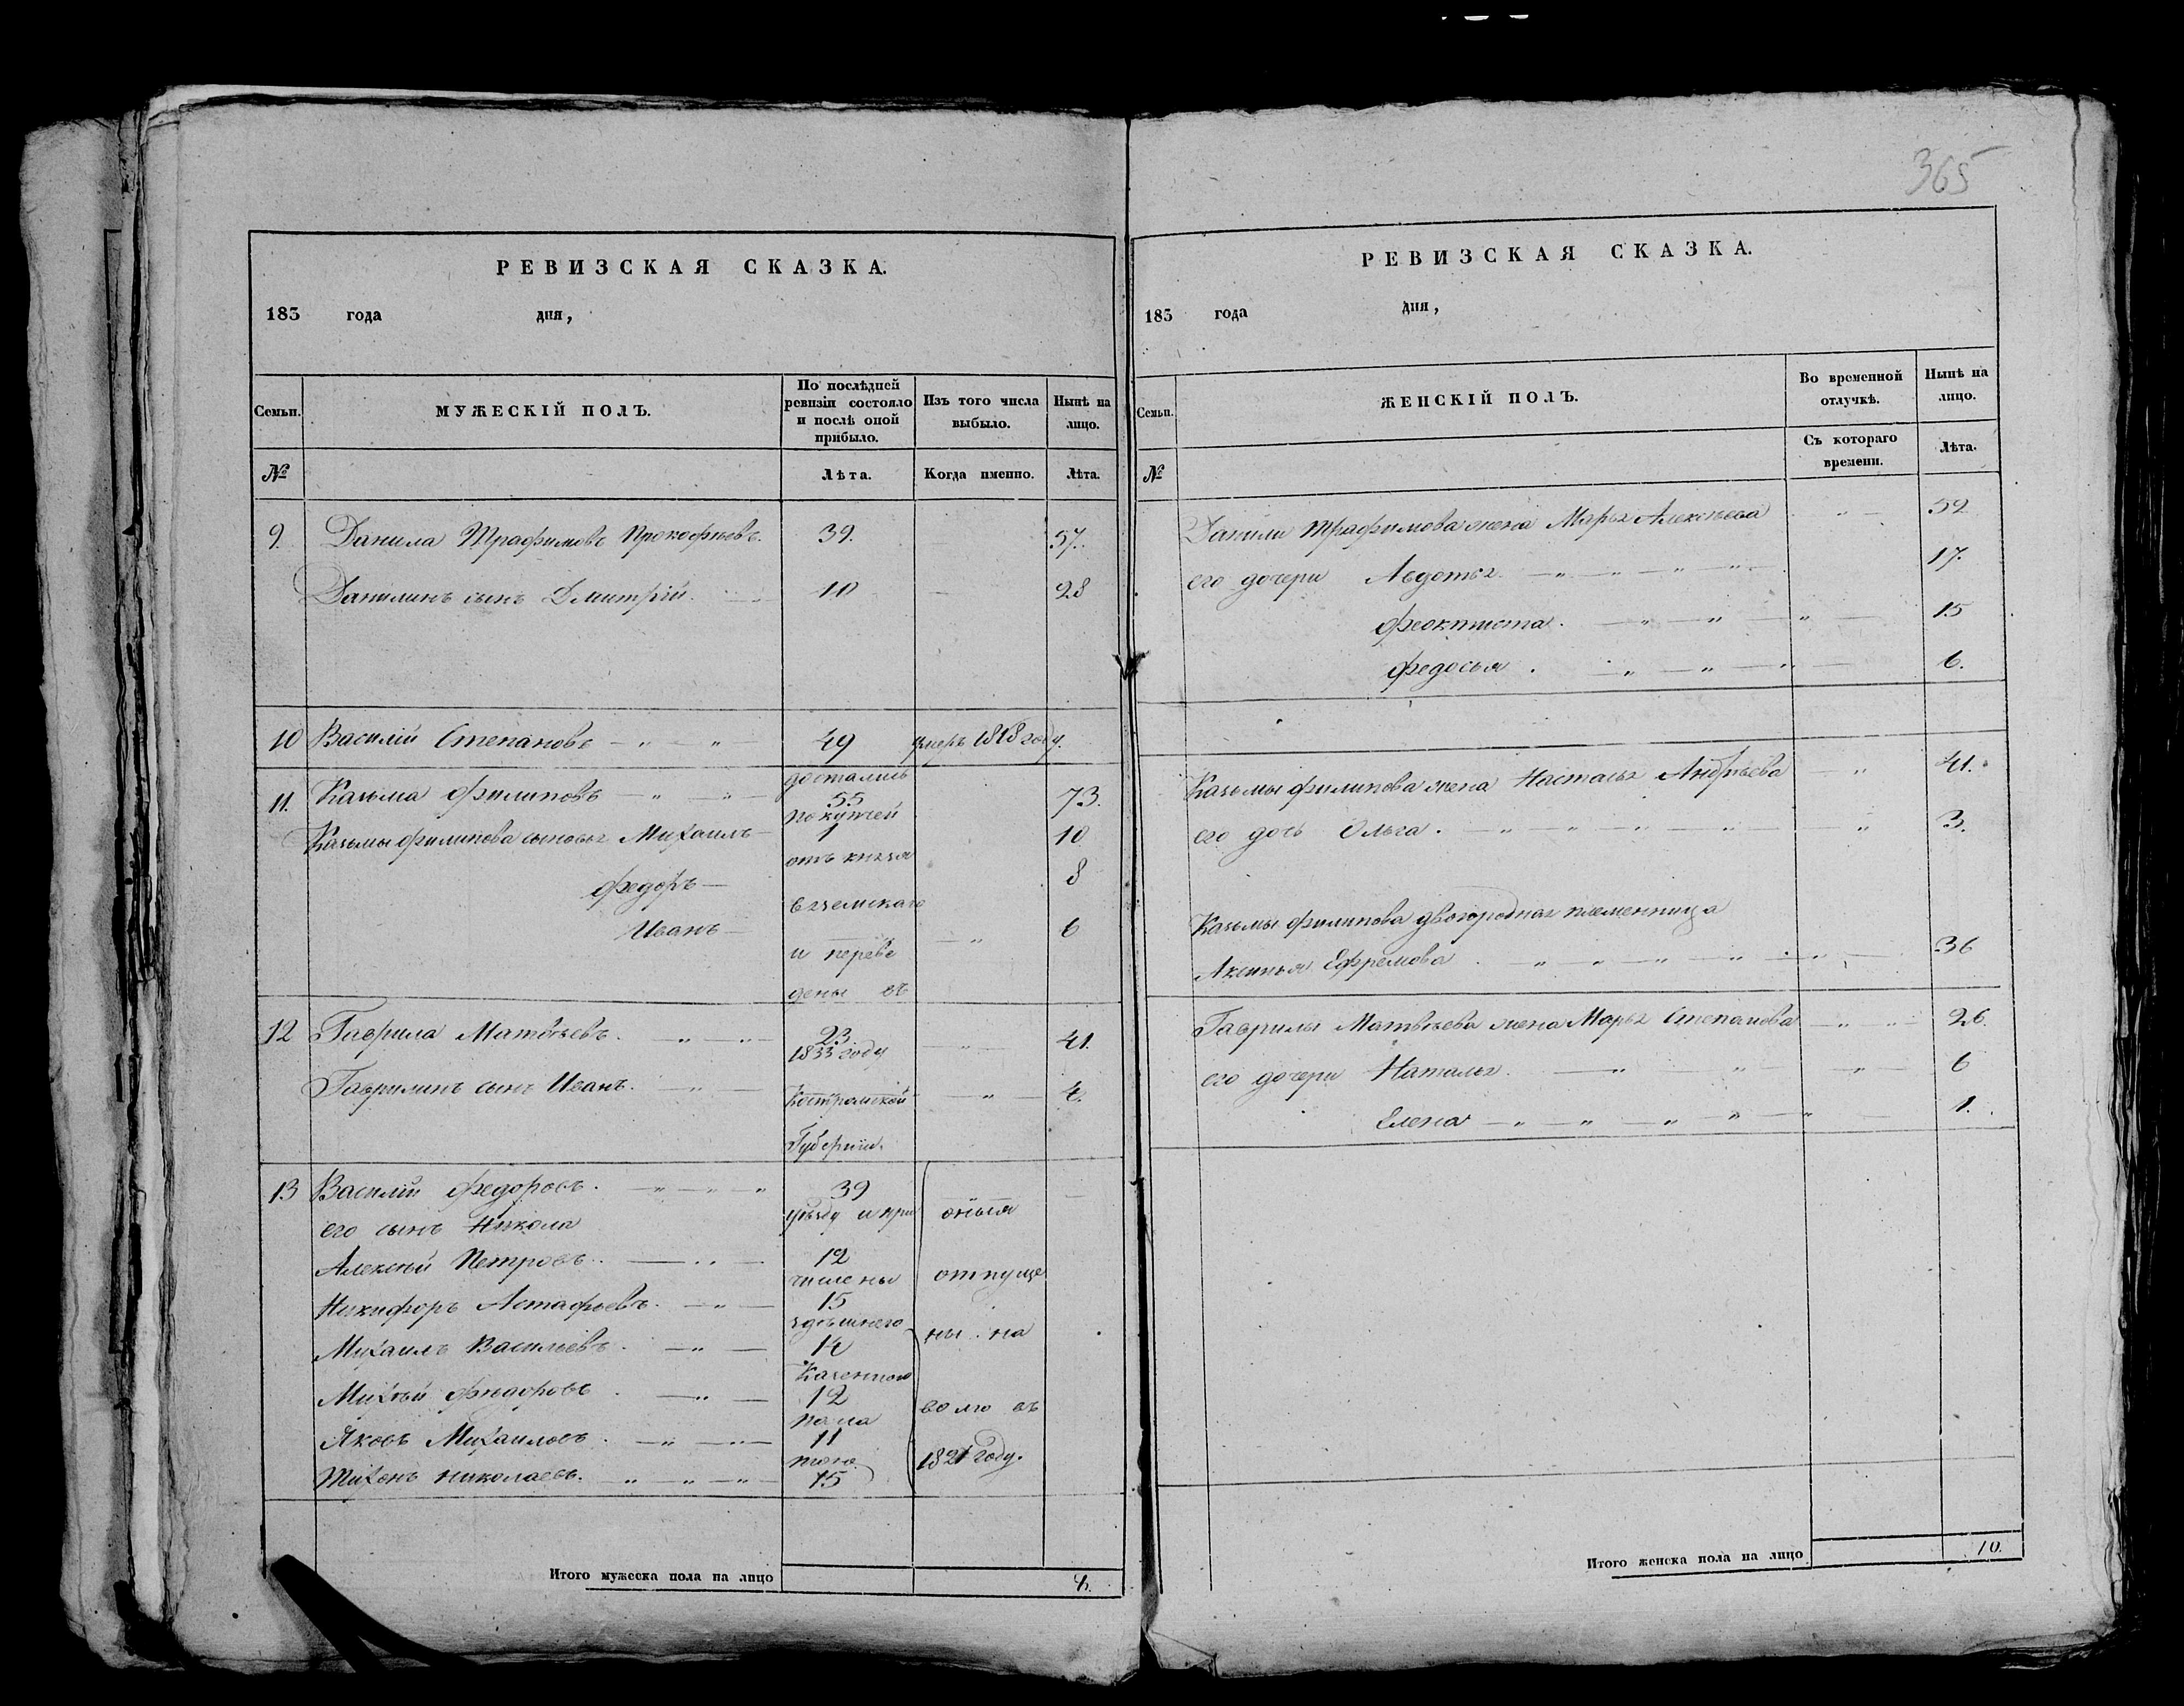 365
РЕВИЗСКАЯ СКАЗКА.
183 года дня,
Семьи. МУЖЕСКІЙ ПОЛЪ. По послѣдней ревизіи состояло и послѣ оной прибыло. Изъ того числа выбыло. Нынѣ на лицо.
№ Лѣта. Когда именно. Лѣта.
9. Данила Трафимовъ Прокофьевъ. 39. 57.
Данилинъ сынъ Дмитрій. 10 28
10 Василій Степановъ 49 умеръ 1818 году.
достались
11. Казьма Филиповъ 55 73.
покупкой
Казьмы Филипова сыновья Михаилъ 1 10
отъ князя
Федоръ 8
Вяземскаго
Иванъ 6
и переве
дены въ
12 Гаврила Матвѣевъ. 23 41.
1833 году
Гаврилинъ сынъ Иванъ. Костромской 4.
Губерніи.
13 Василій Федоровъ. 39
уѣзду и при оныя
его сынъ Никола
Алексѣй Петровъ. 12
числены отпуще
Никифоръ Астафьевъ. 15
здѣшнего ны на
Михаилъ Васильевъ. 14
Казенного
Михѣй 12
пала волю въ
Яковъ Михаиловъ. 11
тою 1821 году.
Тихонъ Николаевъ. 15
Итого мужеска пола на лицо
РЕВИЗСКАЯ СКАЗКА.
183 года дня,
Семьи. ЖЕНСКІЙ ПОЛЪ. Во временной отлучкѣ. Нынѣ на лицо.
№ Съ котораго времени. Лѣта.
Данилы Трафимова жена Марья Алексѣева 52
его дочери Авдотья 17.
Феоктиста. 15
Федосья. 6.
Казьмы Филипова жена Настасья Андрѣева 41.
его дочь Ольга. 3.
Казьмы Филипова двоюродная племенница
Аксинья Ефремова 36
Гаврилы Матвѣева жена Марья Степанова 26.
его дочери Наталья. 6
Елена 1.
Итого женска пола на лицо 10.